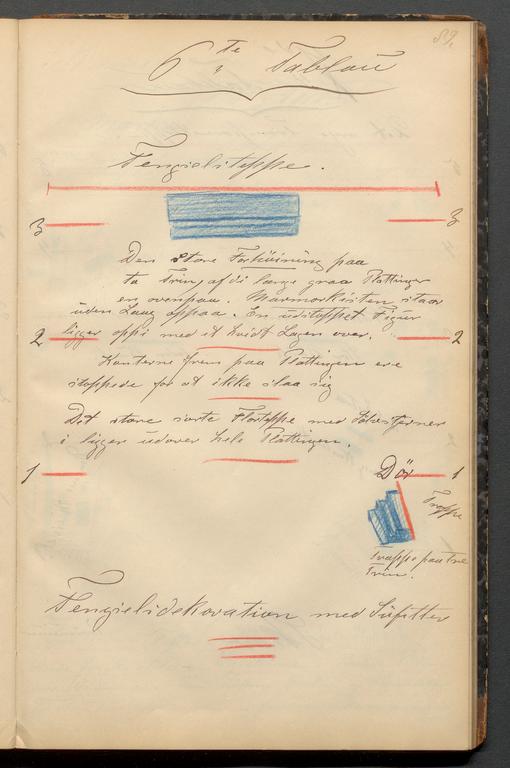 89.
6te Tablau
Fengielsteppe.
3 3
Den store Forhöining paa
to Trin, af di lange graa Plattinger
en ovenpaa. Marmorkisten staar
uden Laag oppaa. En udstoppet Figur
2 ligger oppi med et hvidt Lagen over. 2
Kanterne frem paa Plattingen ere
stoppede for at ikke slaa sig
Det store sorte Florteppe med Sölvstjerner
i ligger udover hele Plattingen.
1 Dör 1
Trappe
Trappe paa tre
Trin.
Fengselsdekoration med Süfitter